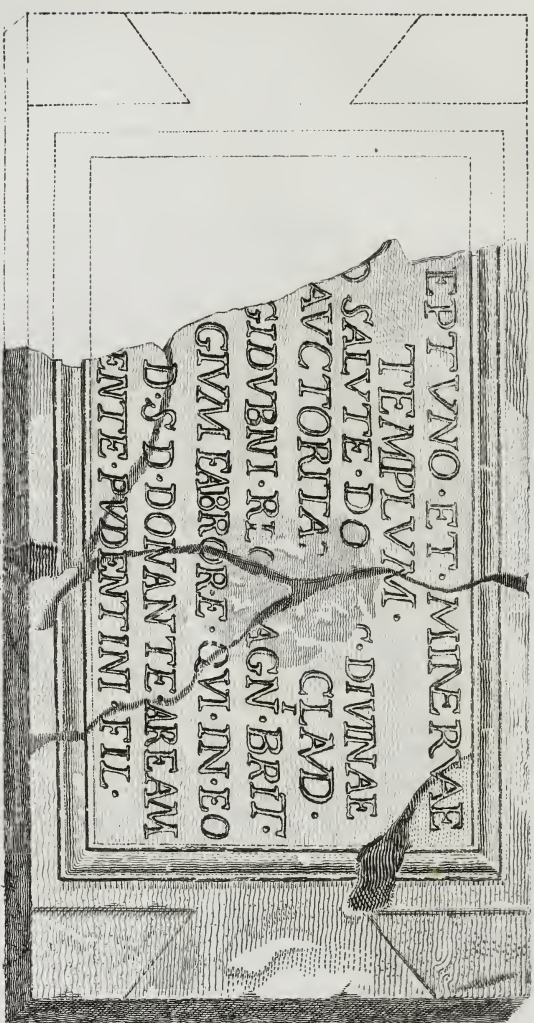 EPTVNO·ET·MINERVAE
TEMPLVM·
O SALVTE·DO DIVINAE
AVCTORITA CLAVD·
GIDVBNI·RE AGNI·BRIT·
GIVM FABRORE·QVI·IN·EO
D·S·D·DONANTE·AREAM
ENTE·PVDENTINI·FIL·